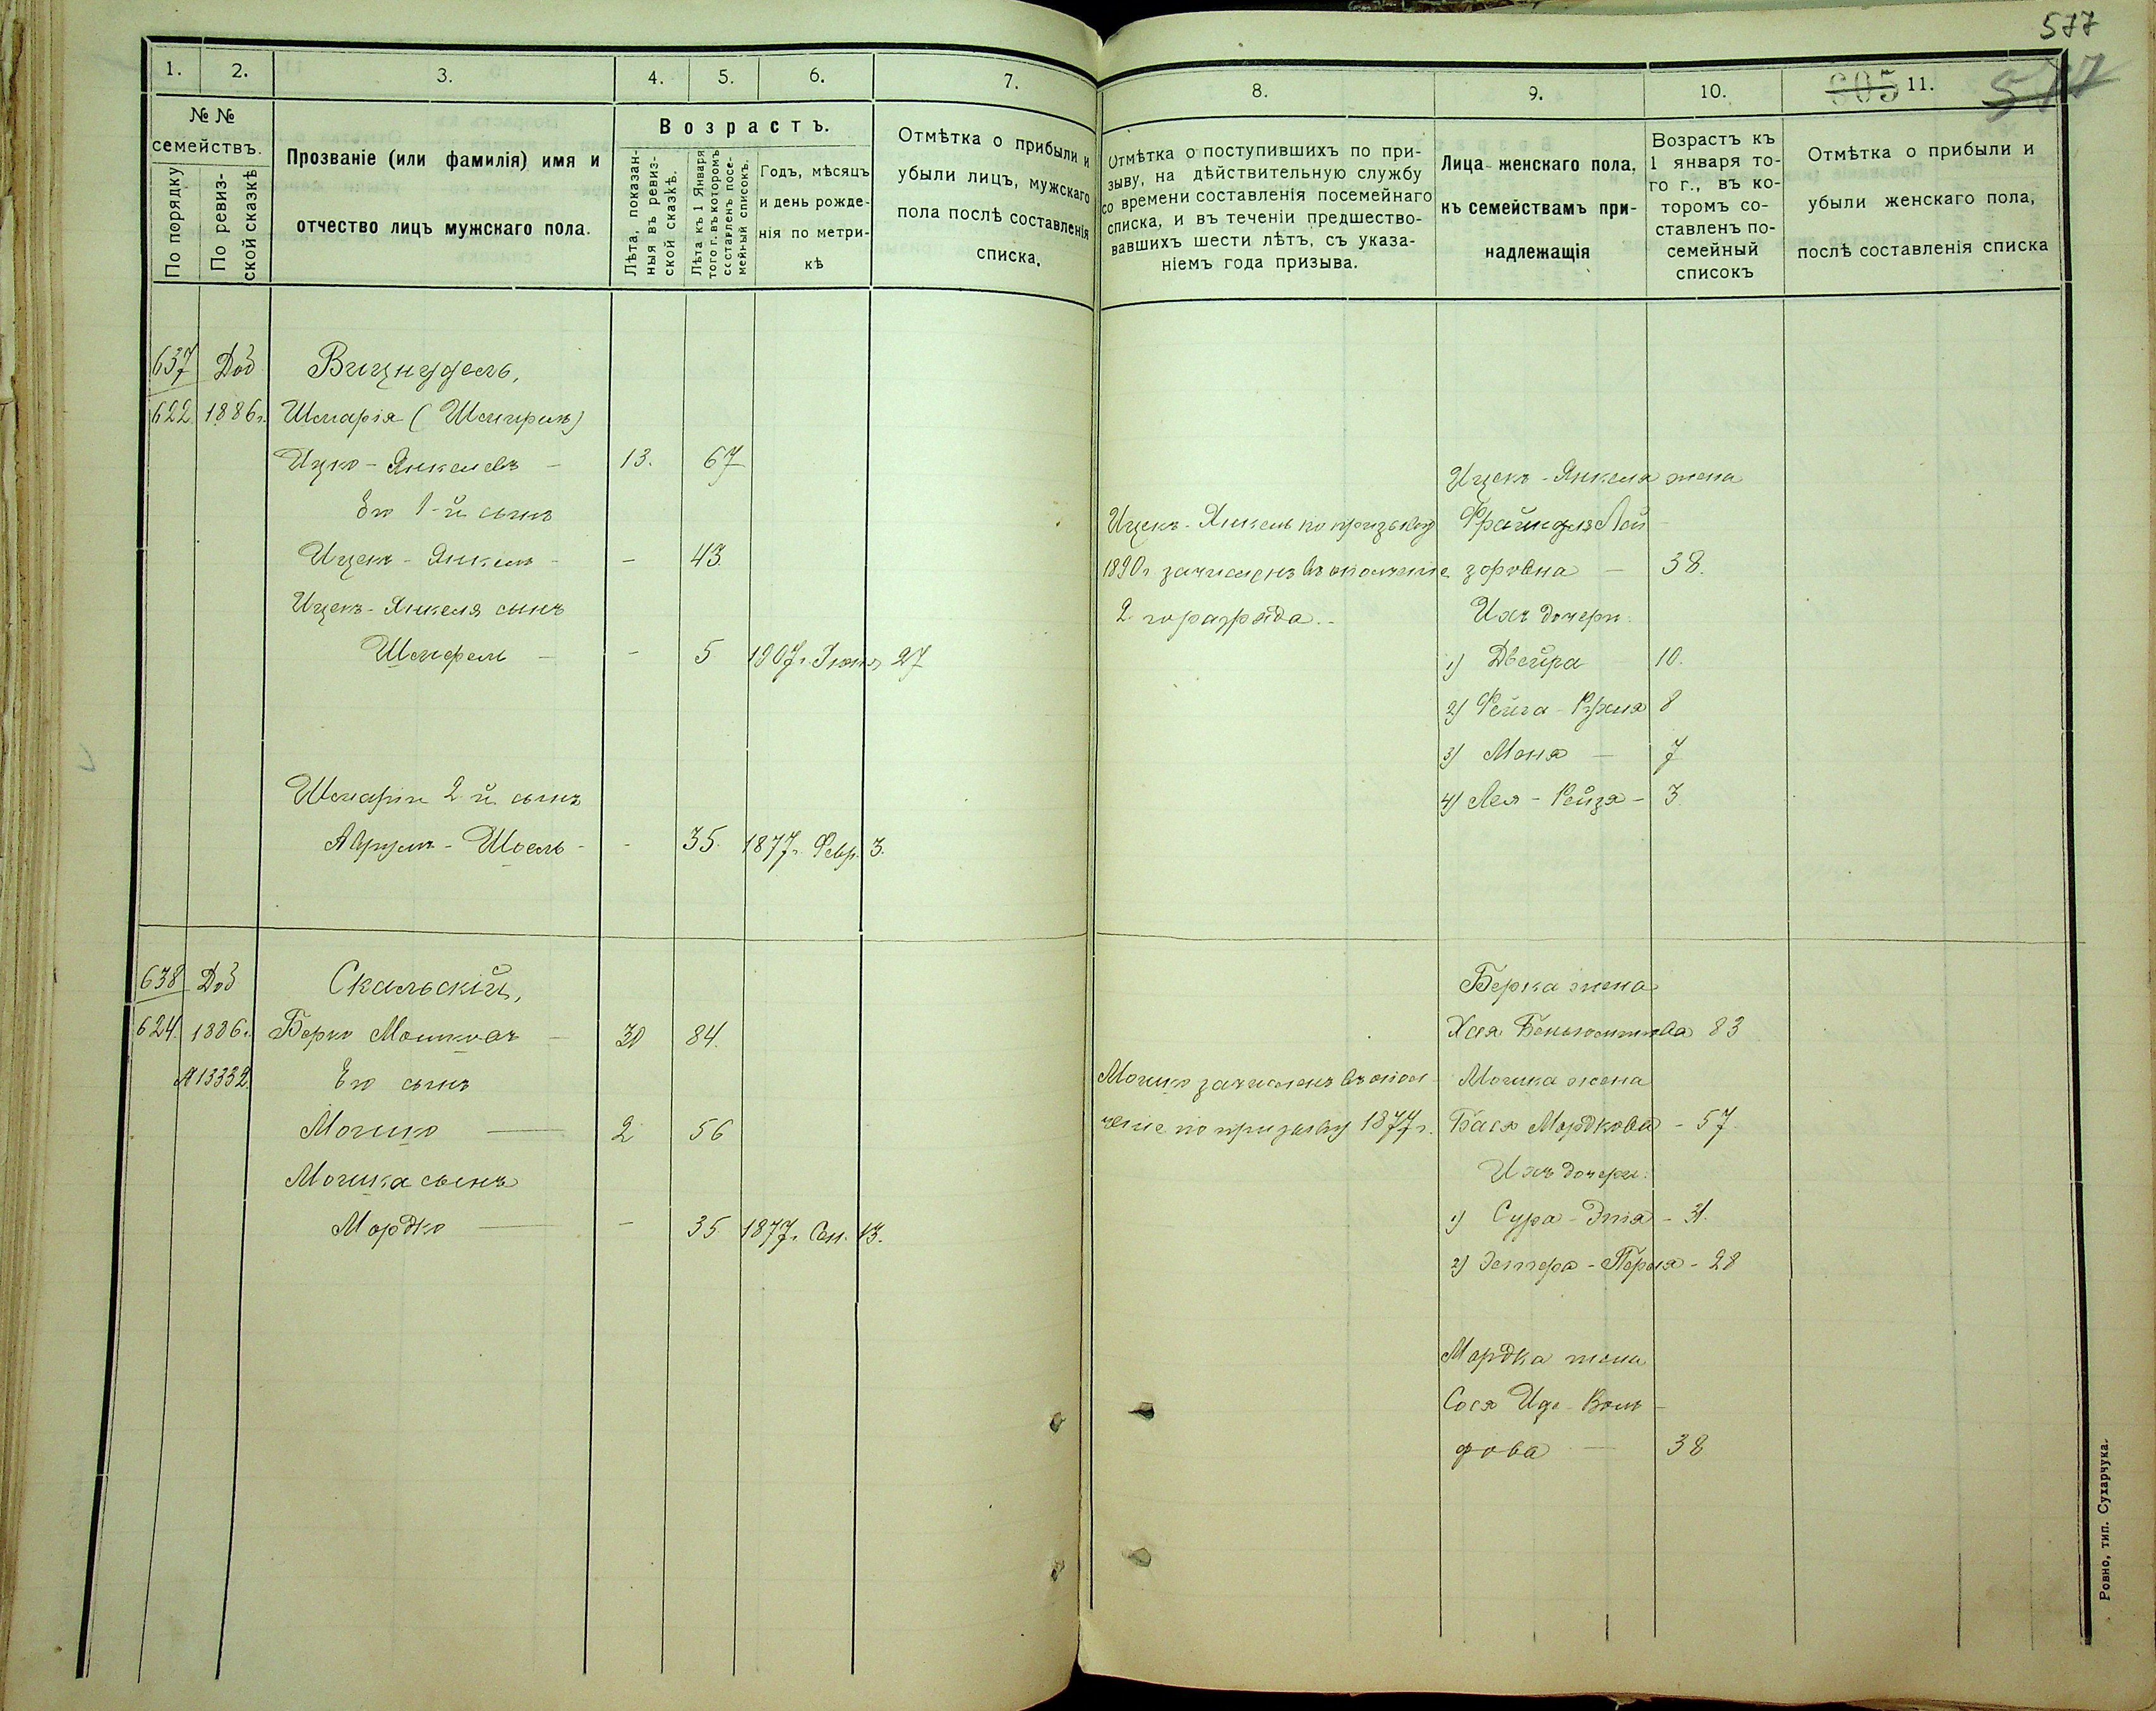 577
577
605
1.
2.
3.
4.
5.
6.
7.
№ №
семействъ.
По порядку
По ревиз-
ской сказкѣ
Прозваніе (или фамилія) имя и
отчество лицъ мужскаго пола.
Возрастъ.
Лѣта, показан-
ныя въ ревиз-
ской сказкѣ.
Лѣта къ 1 Января
того г. въ которомъ
составленъ посе-
мейный списокъ.
Годъ, мѣсяцъ
и день рожде-
нія по метри-
кѣ
Отмѣтка о прибыли и
убыли лицъ, мужскаго
пола послѣ составленія
списка.
637 Доб
622 1886 г. Шмарія (Шмерилъ)
Ицко-Янкелевъ - 13. 67
Его 1-й сынъ
Ицекъ-Янкель - - 43
Ицекъ-Янкеля сынъ
- 5 1907 г. Іюня 27
Шмаріи 2 й сынъ
Аврумъ-Шоель - - 35. 1877 г. Февр. 3.
638 Доб Скальскій,
624. 1886 г. Берко Мошковъ - 30 84.
№ 13332 Его сынъ
Мошко - 2 56
Мошка сынъ
Мордко - - 35 1877 г. Сен. 13.
8.
9.
10.
11.
Отмѣтка о поступившихъ по при-
зыву, на дѣйствительную службу
со времени составленія посемейнаго
списка, и въ теченіи предшество-
вавшихъ шести лѣтъ, съ указа-
ніемъ года призыва.
Лица женскаго пола,
къ семействамъ при-
надлежащія
Возрастъ къ
1 января то-
го г., въ ко-
торомъ со-
ставленъ по-
семейный
списокъ
Отмѣтка о прибыли и
убыли женскаго пола,
послѣ составленія списка
Ицекъ-Янкеля жена
Ицекъ-Янкель по призыву Фрайндля Лей-
1890 г зачисленъ въ ополченіе зоровна - 38.
2 го разряда. - Ихъ дочери:
1) Двейра 10.
2) Фейга-Рухля 8
3) Моня - 7
4) Лея-Рейзя - 3
Берка жена
Хая Беньюминова 83
Мошко зачисленъ въ опол- Мошка жена
ченіе по призыву 1877 г. Бася Мордкова - 57
Ихъ дочери:
1) Сура-Этя - 31.
2) Эстера-Перля - 28
Мордка жена
Сося Иде Воль-
фова - 38
Ровно, тип. Сухарчука.